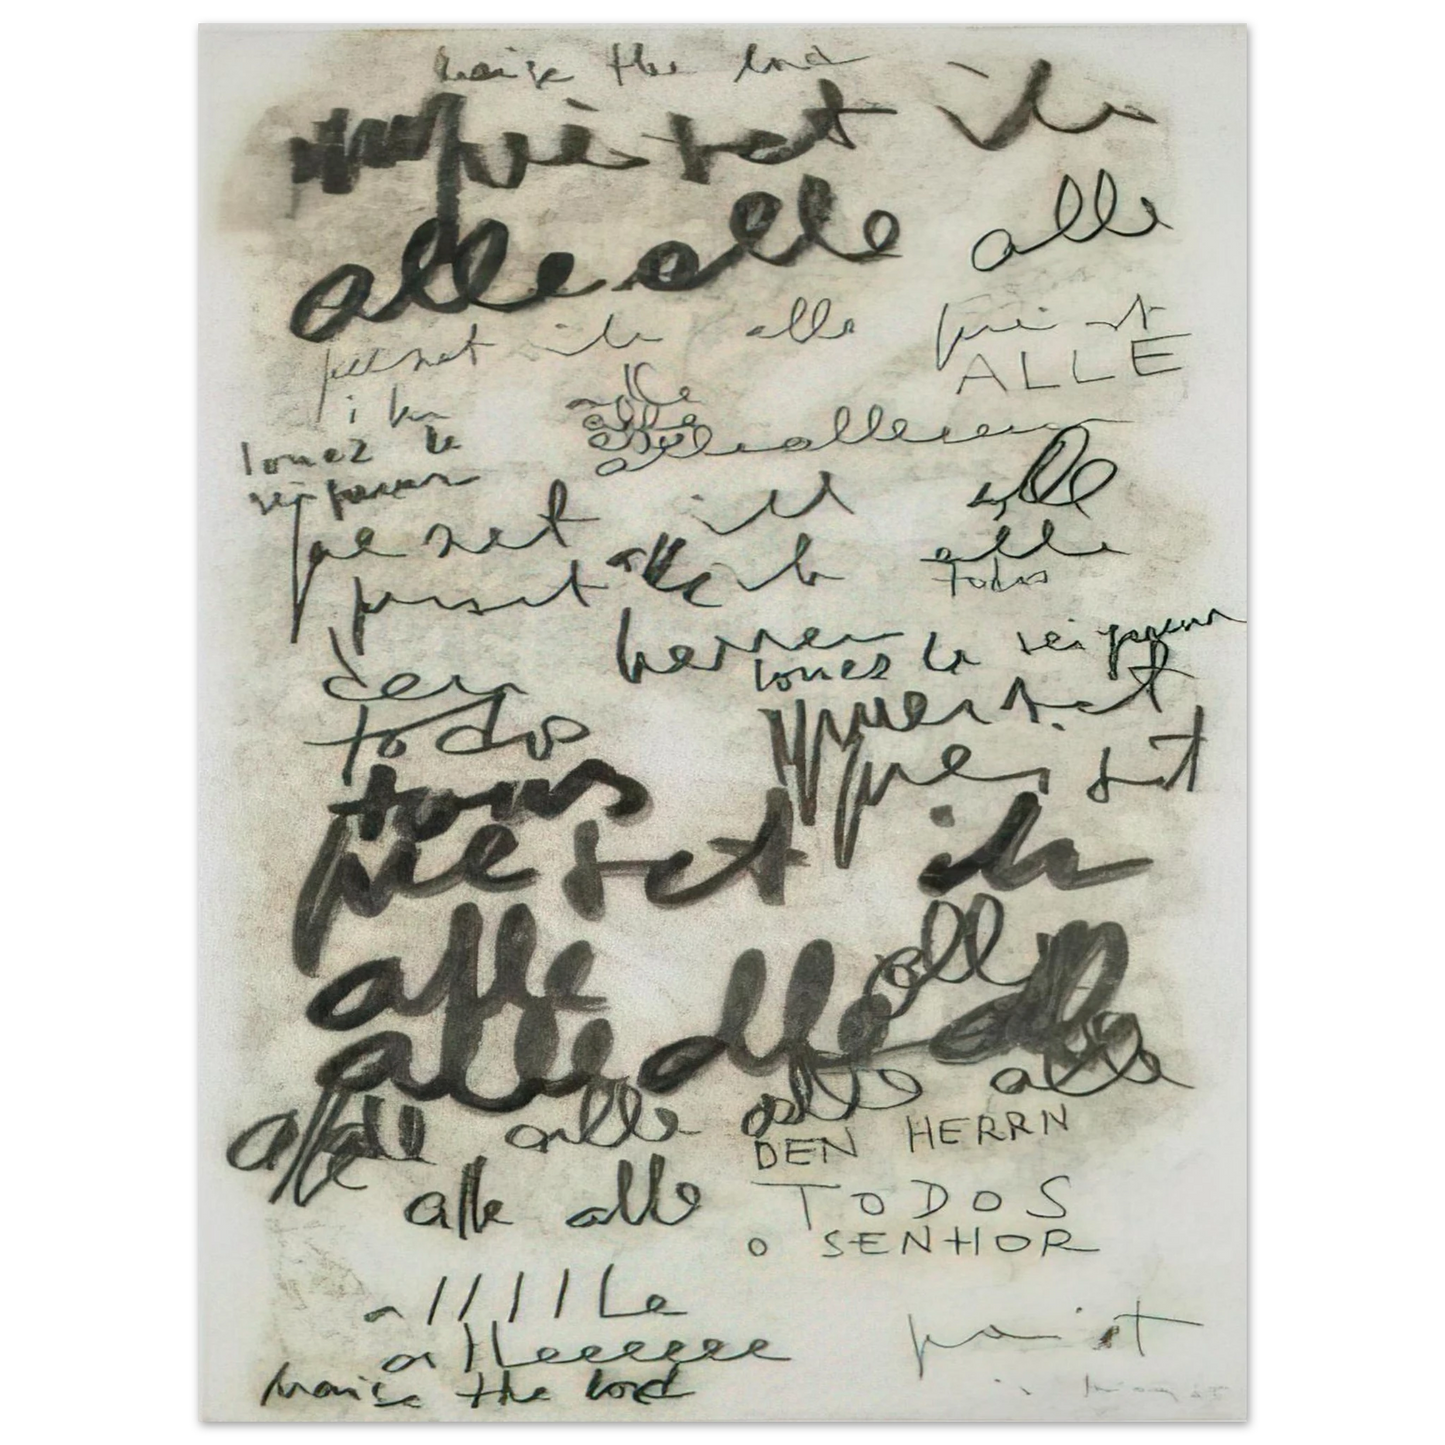 praise the lord
preiset ihn
alle alle alle
preiset ihn alle preiset
ALLE
ihn
alle
louez le
alle
alle alleeeee
seigneur
alle
preiset
alle
preiset alle ihn
todos
herren
louez le seigneur
den
preiset
todos
preiset
tous
preiset ihn
alle alle
alle alle alle
alle alle alle alle
DEN HERRN
alle alle
TODOS
o SENHOR
allllle
preiset
alleeeeeee
praise the lord